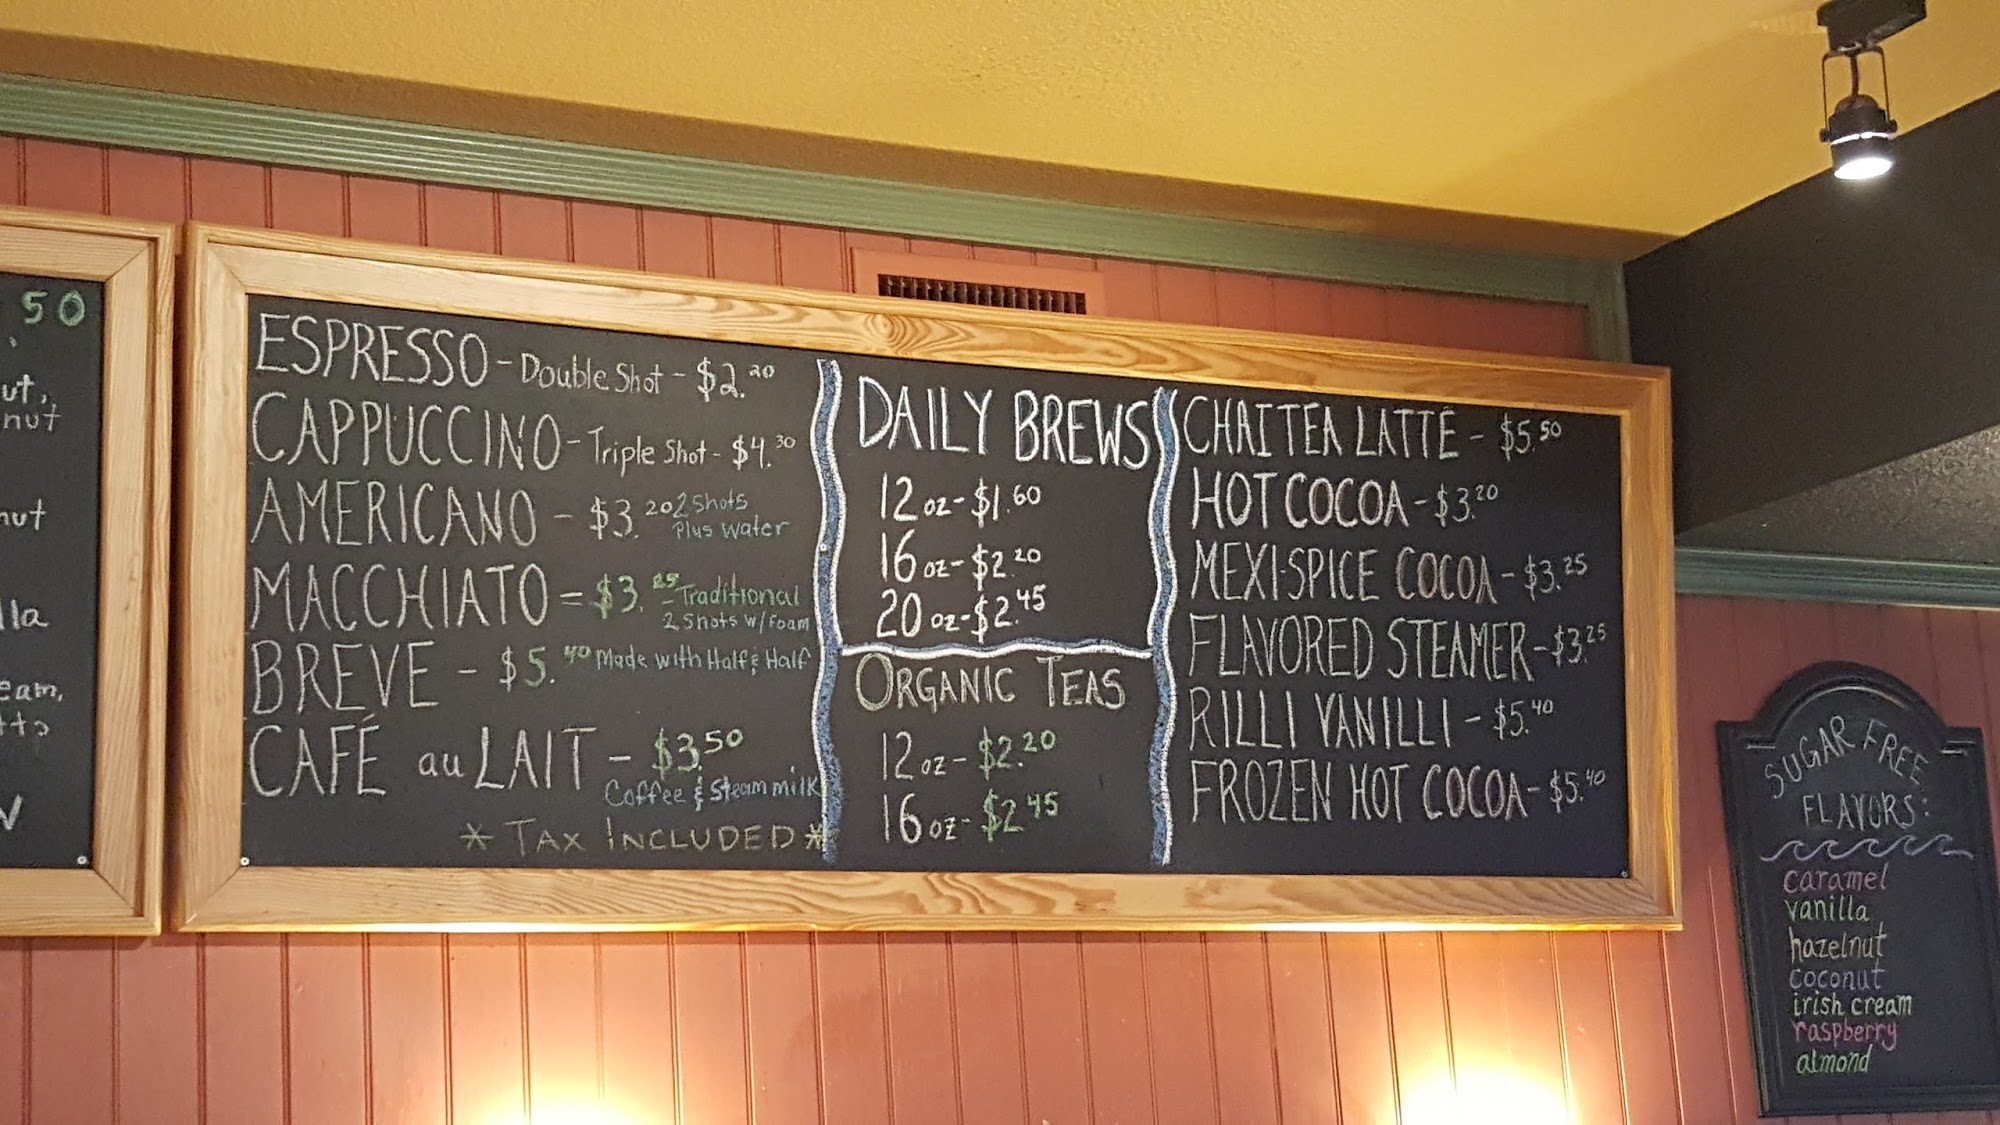 50
ut,
nut
nut
lla
eam,
ESPRESSO - Double Shot - $2.20
CAPPUCCINO - Triple Shot - $4.30
AMERICANO - $3.20 2 Shots
Plus Water
MACCHIATO = $3.25 - Traditional
2 Shots w/ Foam
BREVE - $5.40 Made with Half & Half
CAFÉ au LAIT - $3.50
Coffee & Steam milk
* TAX INCLUDED *
DAILY BREWS
12 oz - $1.60
16 oz - $2.20
20 oz - $2.45
ORGANIC TEAS
12 oz - $2.20
16 oz - $2.45
CHAI TEA LATTE - $5.50
HOT COCOA - $3.20
MEXI-SPICE COCOA - $3.25
FLAVORED STEAMER - $3.25
RILLI VANILLI - $5.40
FROZEN HOT COCOA - $5.40
SUGAR FREE
FLAVORS:
caramel
vanilla
hazelnut
coconut
irish cream
raspberry
almond